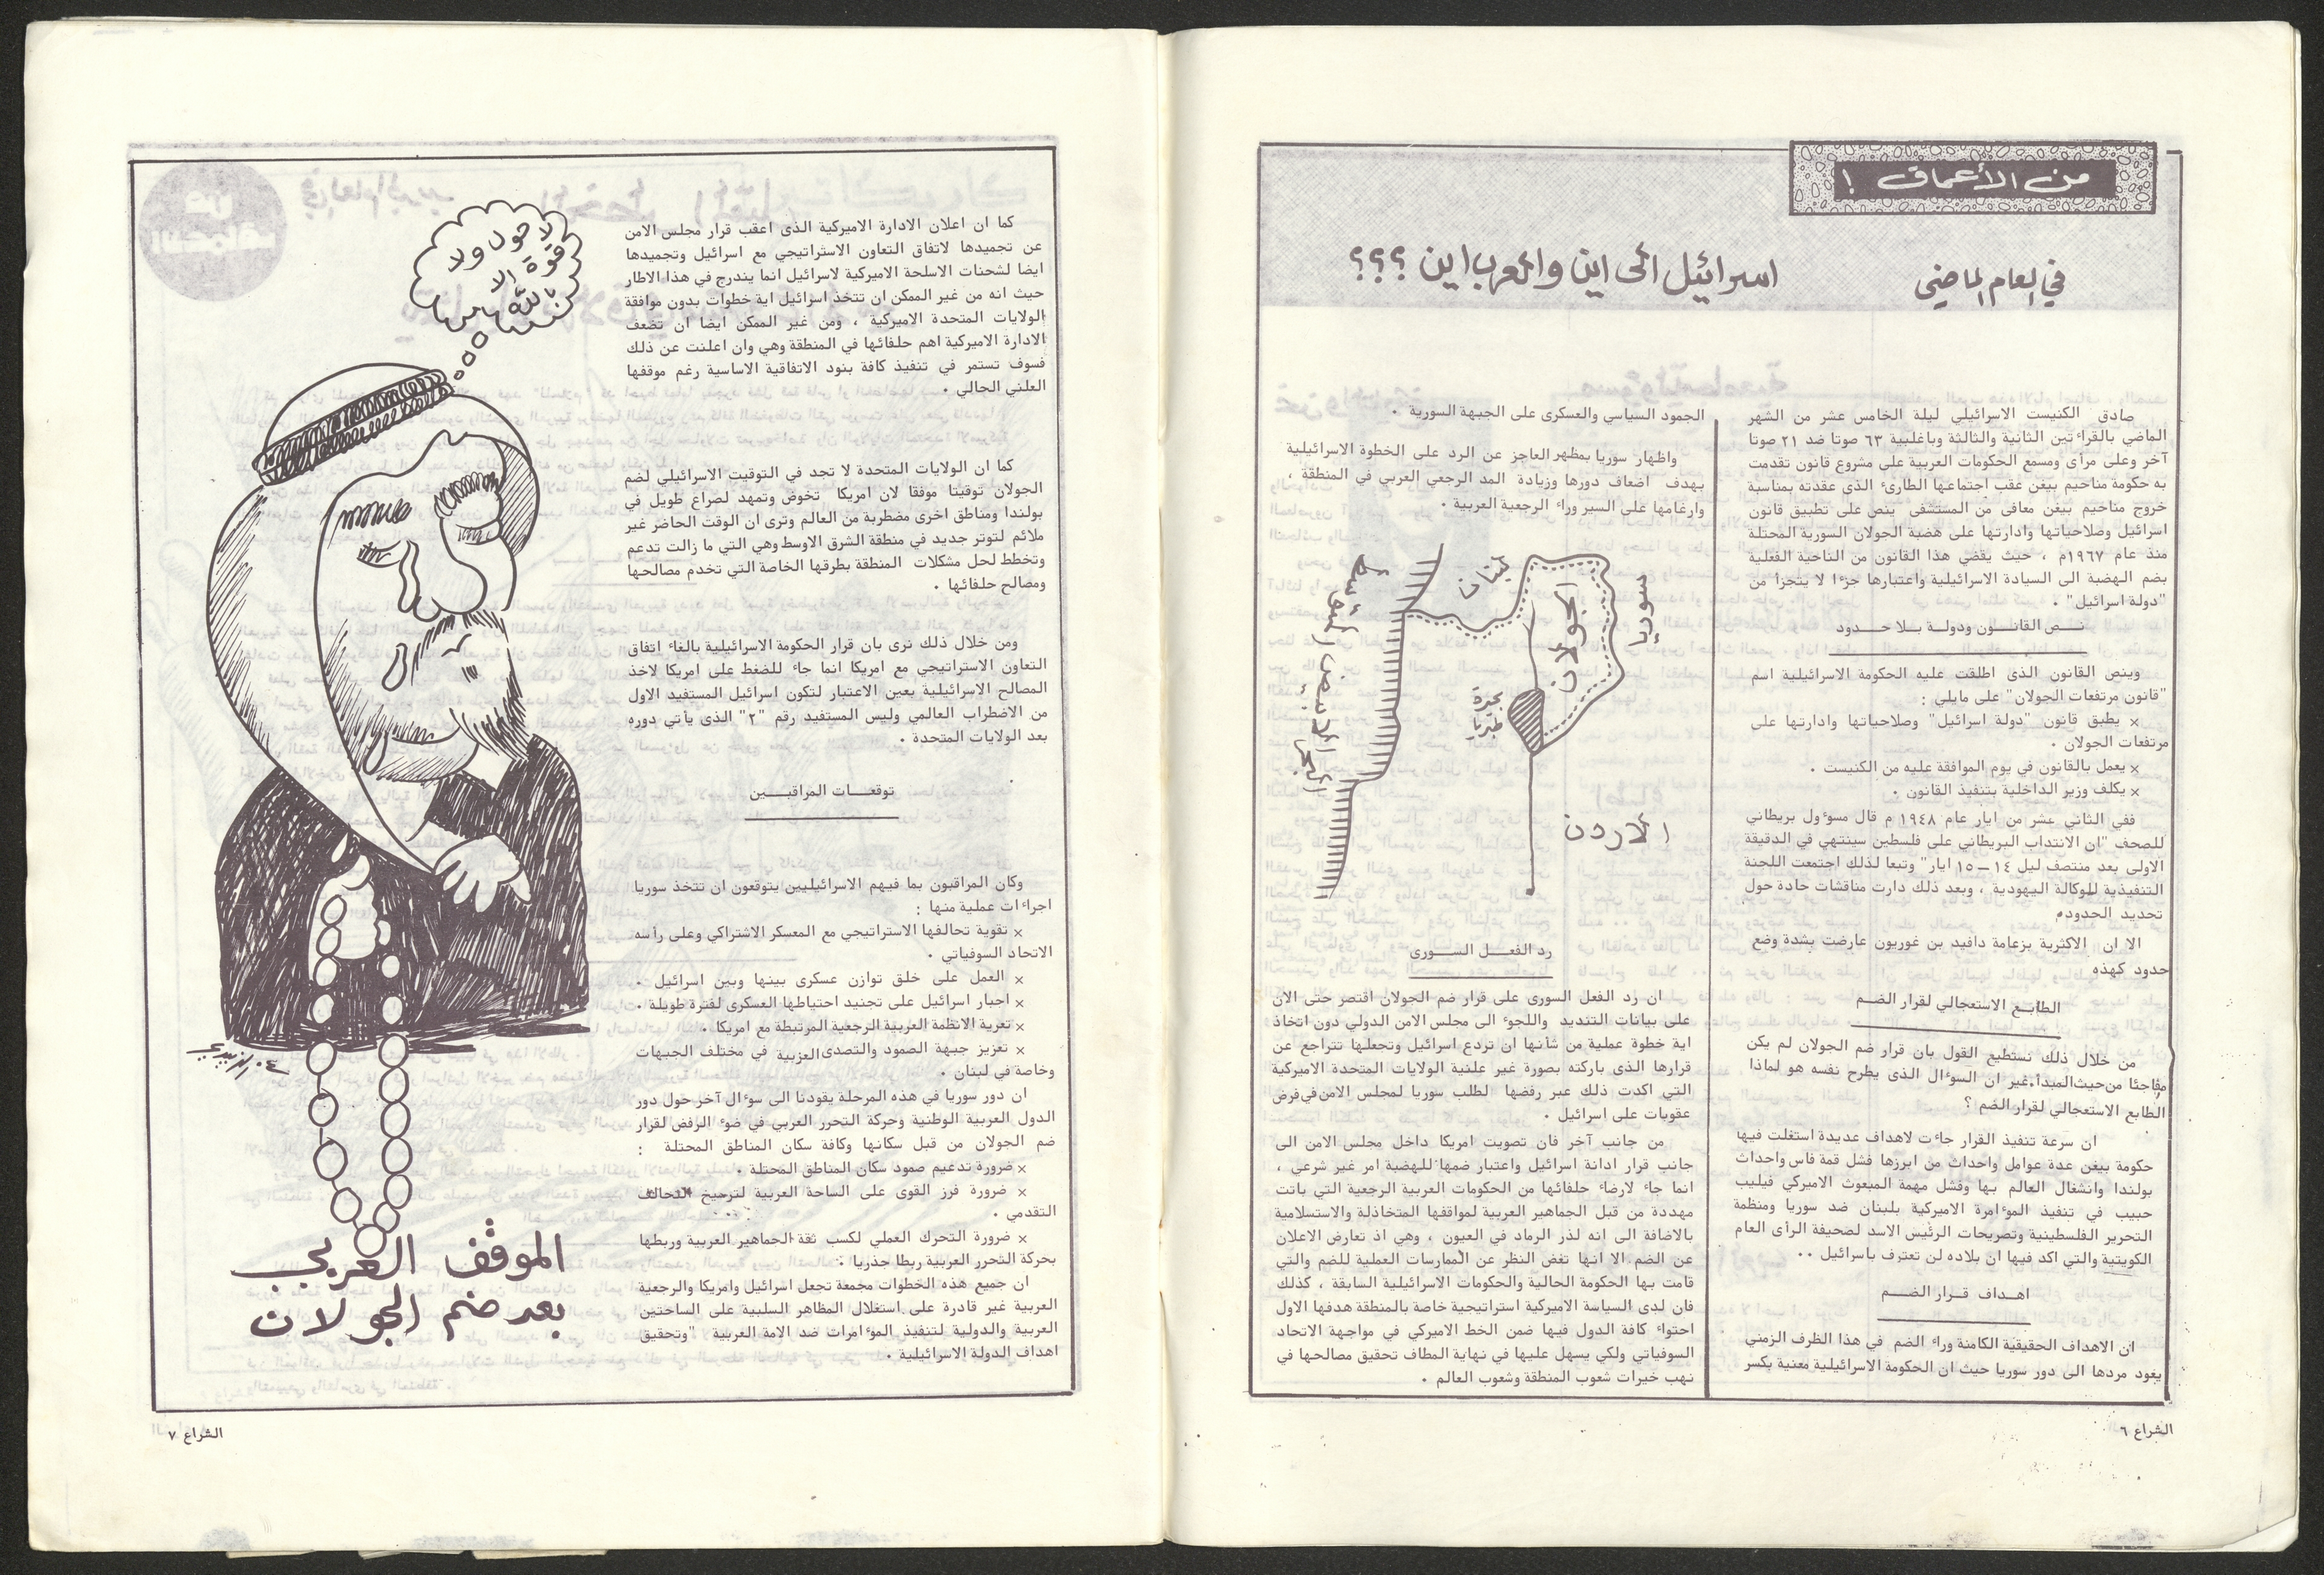 من الأعماق !
في العام الماضي
اسرائيل الى اين والعرب اين ؟؟؟
صادق الكنيست الاسرائيلي ليلة الخامس عشر من الشهر
الماضي بالقراءتين الثانية والثالثة وباغلبية ٦٣ صوتا ضد ٢١ صوتا
آخر وعلى مرأى ومسمع الحكومات العربية على مشروع قانون تقدمت
به حكومة مناحيم بيغن عقب اجتماعها الطارىء الذى عقدته بمناسبة
خروج مناحيم بيغن معافى من المستشفى ينص على تطبيق قانون
اسرائيل وصلاحياتها وادارتها على هضبة الجولان السورية المحتلة
منذ عام ١٩٦٧م ، حيث يقضي هذا القانون من الناحية الفعلية
بضم الهضبة الى السيادة الاسرائيلية واعتبارها جزءا لا يتجزأ من
"دولة اسرائيل" .
نــص القانــون ودولــة بــلا حــدود
وينص القانون الذى اطلقت عليه الحكومة الاسرائيلية اسم
"قانون مرتفعات الجولان" على مايلي :
× يطبق قانون "دولة اسرائيل" وصلاحياتها وادارتها على
مرتفعات الجولان .
× يعمل بالقانون في يوم الموافقة عليه من الكنيست .
× يكلف وزير الداخلية بتنفيذ القانون .
ففي الثاني عشر من ايار عام ١٩٤٨ م قال مسوءول بريطاني
للصحف "ان الانتداب البريطاني على فلسطين سينتهي في الدقيقة
الاولى بعد منتصف ليل ١٤ — ١٥ ايار" وتبعا لذلك اجتمعت اللجنة
التنفيذية للوكالة اليهودية ، وبعد ذلك دارت مناقشات حادة حول
تحديد الحدود.
الا ان الاكثرية بزعامة دافيد بن غوريون عارضت بشدة وضع
حدود كهذه
الطابــع الاستعجالي لقرار الضــم
من خلال ذلك نستطيع القول بان قرار ضم الجولان لم يكن
مفاجئا من حيث المبدأ، غير ان السوءال الذى يطرح نفسه هو لماذا
الطابع الاستعجالي لقرار الضم ؟
ان سرعة تنفيذ القرار جاءت لاهداف عديدة استغلت فيها
حكومة بيغن عدة عوامل واحداث من ابرزها فشل قمة فاس واحداث
بولندا وانشغال العالم بها وفشل مهمة المبعوث الاميركي فيليب
حبيب في تنفيذ الموءامرة الاميركية بلبنان ضد سوريا ومنظمة
التحرير الفلسطينية وتصريحات الرئيس الاسد لصحيفة الرأى العام
الكويتية والتي اكد فيها ان بلاده لن تعترف باسرائيل ..
اهــداف قــرار الضــم
ان الاهداف الحقيقية الكامنة وراء الضم في هذا الظرف الزمني
يعود مردها الى دور سوريا حيث ان الحكومة الاسرائيلية معنية بكسر
الجمود السياسي والعسكرى على الجبهة السورية .
واظهار سوريا بمظهر العاجز عن الرد على الخطوة الاسرائيلية
بهدف اضعاف دورها وزيادة المد الرجعي العربي في المنطقة ،
وارغامها على السير وراء الرجعية العربية .
لبنان
سوريا
الجولان
بحيرة
طبريا
البحر الابيض المتوسط
الاردن
رد الفعــل الســورى
ان رد الفعل السورى على قرار ضم الجولان اقتصر حتى الان
على بيانات التنديد واللجوء الى مجلس الامن الدولي دون اتخاذ
اية خطوة عملية من شأنها ان تردع اسرائيل وتجعلها تتراجع عن
قرارها الذى باركته بصورة غير علنية الولايات المتحدة الاميركية
التي اكدت ذلك عبر رفضها لطلب سوريا لمجلس الامن في فرض
عقوبات على اسرائيل .
من جانب آخر فان تصويت امريكا داخل مجلس الامن الى
جانب قرار ادانة اسرائيل واعتبار ضمها للهضبة امر غير شرعي ،
انما جاء لارضاء حلفائها من الحكومات العربية الرجعية التي باتت
مهددة من قبل الجماهير العربية لمواقفها المتخاذلة والاستسلامية
بالاضافة الى انه لذر الرماد في العيون ، وهي اذ تعارض الاعلان
عن الضم الا انها تغض النظر عن الممارسات العملية للضم والتي
قامت بها الحكومة الحالية والحكومات الاسرائيلية السابقة ، كذلك
فان لدى السياسة الاميركية استراتيجية خاصة بالمنطقة هدفها الاول
احتواء كافة الدول فيها ضمن الخط الاميركي في مواجهة الاتحاد
السوفياتي ولكي يسهل عليها في نهاية المطاف تحقيق مصالحها في
نهب خيرات شعوب المنطقة وشعوب العالم .
الشراع ٦
كما ان اعلان الادارة الاميركية الذى اعقب قرار مجلس الامن
عن تجميدها لاتفاق التعاون الاستراتيجي مع اسرائيل وتجميدها
ايضا لشحنات الاسلحة الاميركية لاسرائيل انما يندرج في هذا الاطار
حيث انه من غير الممكن ان تتخذ اسرائيل اية خطوات بدون موافقة
الولايات المتحدة الاميركية ، ومن غير الممكن ايضا ان تضعف
الادارة الاميركية اهم حلفائها في المنطقة وهي وان اعلنت عن ذلك
فسوف تستمر في تنفيذ كافة بنود الاتفاقية الاساسية رغم موقفها
العلني الحالي .
كما ان الولايات المتحدة لا تجد في التوقيت الاسرائيلي لضم
الجولان توقيتا موفقا لان امريكا تخوض وتمهد لصراع طويل في
بولندا ومناطق اخرى مضطربة من العالم وترى ان الوقت الحاضر غير
ملائم لتوتر جديد في منطقة الشرق الاوسط وهي التي ما زالت تدعم
وتخطط لحل مشكلات المنطقة بطرقها الخاصة التي تخدم مصالحها
ومصالح حلفائها .
ومن خلال ذلك نرى بان قرار الحكومة الاسرائيلية بالغاء اتفاق
التعاون الاستراتيجي مع امريكا انما جاء للضغط على امريكا لاخذ
المصالح الاسرائيلية بعين الاعتبار لتكون اسرائيل المستفيد الاول
من الاضطراب العالمي وليس المستفيد رقم "٢" الذى يأتي دوره
بعد الولايات المتحدة .
توقعــات المراقبــين
وكان المراقبون بما فيهم الاسرائيليين يتوقعون ان تتخذ سوريا
اجراءات عملية منها :
× تقوية تحالفها الاستراتيجي مع المعسكر الاشتراكي وعلى رأسه
الاتحاد السوفياتي .
× العمل على خلق توازن عسكرى بينها وبين اسرائيل .
× اجبار اسرائيل على تجنيد احتياطها العسكرى لفترة طويلة .
× تعرية الانظمة العربية الرجعية المرتبطة مع امريكا .
× تعزيز جبهة الصمود والتصدى العربية في مختلف الجبهات
وخاصة في لبنان .
ان دور سوريا في هذه المرحلة يقودنا الى سوءال آخر حول دور
الدول العربية الوطنية وحركة التحرر العربي في ضوء الرفض لقرار
ضم الجولان من قبل سكانها وكافة سكان المناطق المحتلة :
× ضرورة تدعيم صمود سكان المناطق المحتلة .
× ضرورة فرز القوى على الساحة العربية لترسيخ التحالف
التقدمي .
× ضرورة التحرك العملي لكسب ثقة الجماهير العربية وربطها
بحركة التحرر العربية ربطا جذريا .
ان جميع هذه الخطوات مجمعة تجعل اسرائيل وامريكا والرجعية
العربية غير قادرة على استغلال المظاهر السلبية على الساحتين
العربية والدولية لتنفيذ الموءامرات ضد الامة العربية "وتحقيق
اهداف الدولة الاسرائيلية .
لا حول ولا
قوة الا
بالله
الموقف العربي
بعد ضم الجولان
الشراع ٧